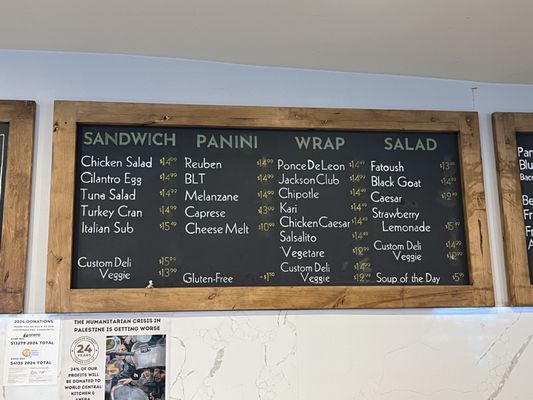 SANDWICH
Chicken Salad $14.99
Cilantro Egg $14.99
Tuna Salad $14.99
Turkey Cran $14.99
Italian Sub $15.49
Custom Deli $15.99
Veggie $13.99
PANINI
Reuben $14.99
BLT $14.99
Melanzane $14.99
Caprese $13.99
Cheese Melt $10.99
Gluten-Free
WRAP
PonceDeLeon $14.99
JacksonClub $14.99
Chipotle $14.99
Kari $14.99
ChickenCaesar $14.99
Salsalito
Vegetare
Custom Deli
Veggie
SALAD
Fatoush
Black Goat
Caesar
Strawberry
Lemonade
Custom Deli
Veggie
Soup of the Day
Pan
Blu
Bac
2024 DONATIONS
$13279 2024 TOTAL
$4135 2024 TOTAL
THE HUMANITARIAN CRISIS IN
PALESTINE IS GETTING WORSE
24
24% OF OUR
PROFITS WILL
BE DONATED
TO WORLD
CENTRAL
KITCHEN &
ANERA